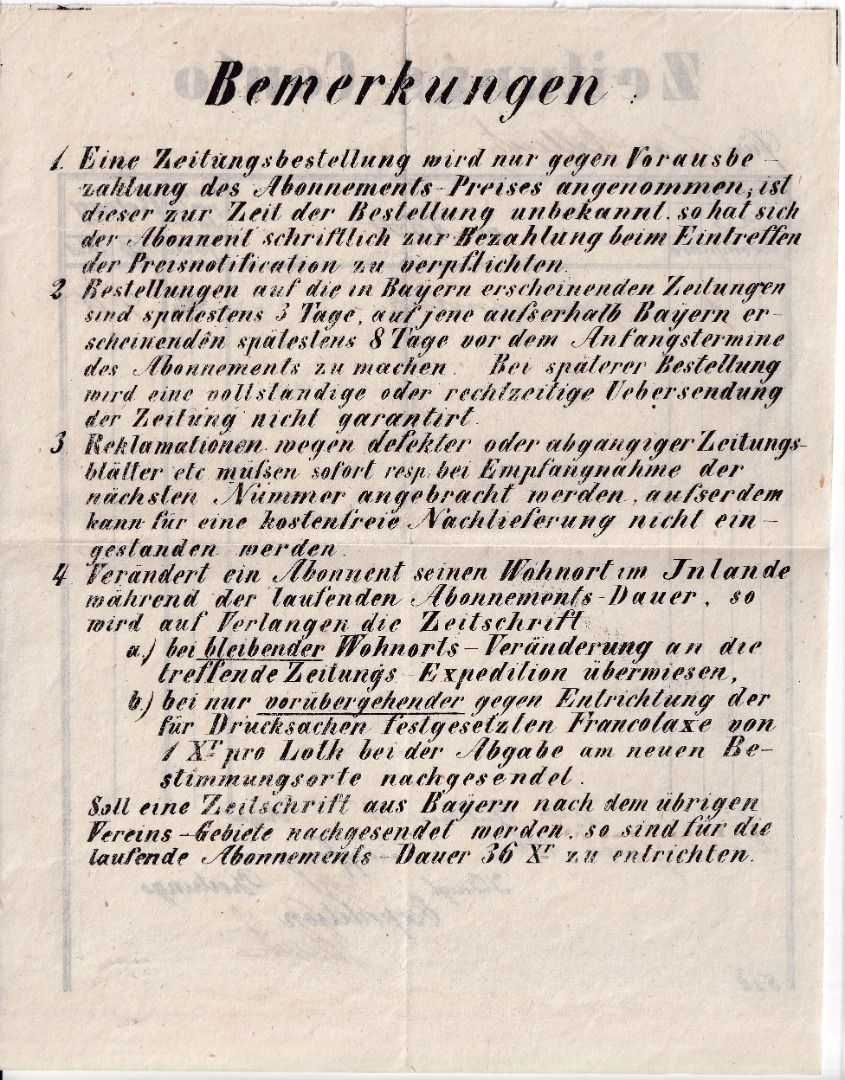 Bemerkungen.
1. Eine Zeitungsbestellung wird nur gegen Vorausbe-
zahlung des Abonnements-Preises angenommen, ist
dieser zur Zeit der Bestellung unbekannt, so hat sich
der Abonnent schriftlich zur Bezahlung beim Eintreffen
der Preisnotification zu verpflichten.
2. Bestellungen auf die in Bayern erscheinenden Zeitungen
sind spätestens 3 Tage, auf jene aufserhalb Bayern er-
scheinenden spätestens 8 Tage vor dem Anfangstermine
des Abonnements zu machen. Bei späterer Bestellung
wird eine vollständige oder rechtzeitige Uebersendung
der Zeitung nicht garantirt.
3. Reklamationen wegen defekter oder abgängiger Zeitungs-
blätter etc müfsen sofort resp. bei Empfangnahme der
nächsten Nummer angebracht werden, aufserdem
kann für eine kostenfreie Nachlieferung nicht ein-
gestanden werden.
4. Verändert ein Abonnent seinen Wohnort im Jnlande
während der laufenden Abonnements-Dauer, so
wird auf Verlangen die Zeitschrift
a.) bei bleibender Wohnorts-Veränderung an die
treffende Zeitungs-Expedition überwiesen,
b.) bei nur vorübergehender gegen Entrichtung der
für Drucksachen festgesetzten Francotaxe von
1 Xr pro Loth bei der Abgabe am neuen Be-
stimmungsorte nachgesendet.
Soll eine Zeitschrift aus Bayern nach dem übrigen
Vereins-Gebiete nachgesendet werden, so sind für die
laufende Abonnements-Dauer 36 Xr zu entrichten.